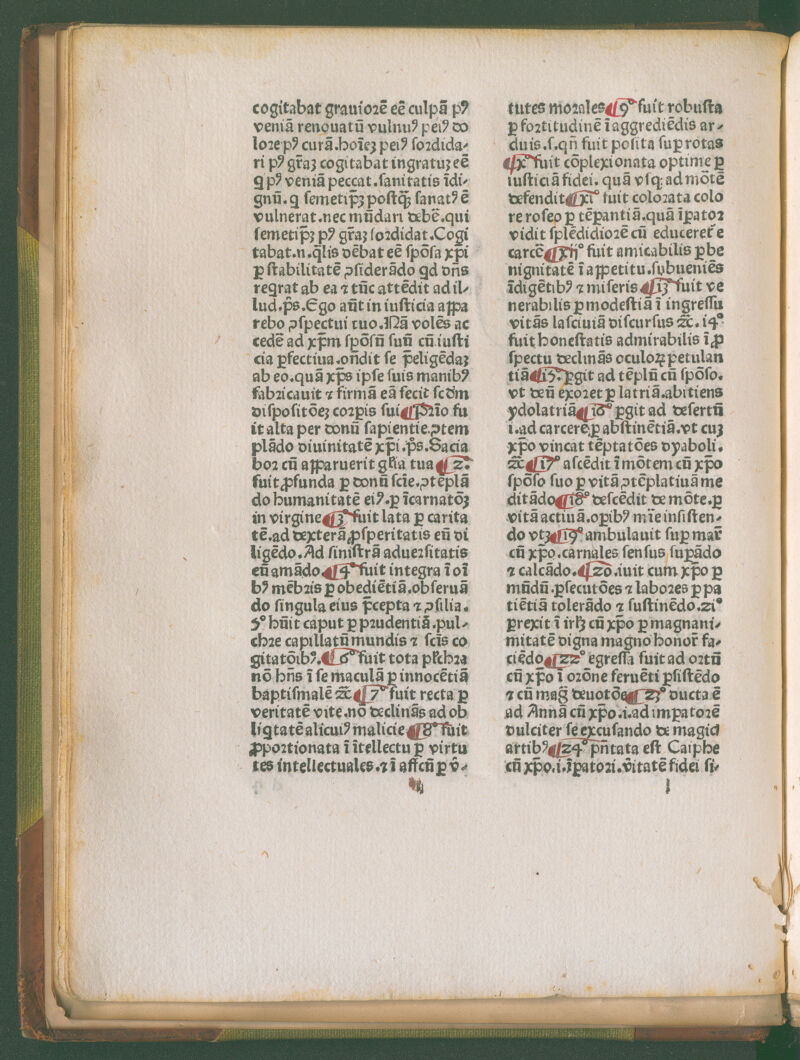 cogitabat grauiorē eē culpā pꝰ
veniā renouatū vulnuꝰ peiꝰ do
lore pꝰ curā.hoīeꝫ peiꝰ sordida-
ri pꝰ gr̄aꝫ cogitabat ingratuꝫ eē
q pꝰ veniā peccat.sanitatis īdi-
gnū.q semetip̄ꝫ postq̄ꝫ sanatꝰ ē
vulnerat.nec mūdari debē.qui
semetip̄ꝫ pꝰ gr̄aꝫ sordidat.Cogi
tabat.n.q̄lis debat eē spōsa xp̄i
ꝑ stabilitatē ꝯsiderādo qd dn̄s
reqrat ab ea ⁊ tūc attēdit ad il-
lud.p̄s.Ego aūt in iusticia appa
rebo ꝯspectui tuo.Nā volēs ac
cedē ad xp̄m spōsū suū cū iusti
cia ꝑfectiua.on̄dit se p̄eligēdaꝫ
ab eo.quā xp̄s ipse suis manibꝰ
fabricauit ⁊ firmā eā fecit scd̄m
dispositōeꝫ corpis sui ¶ Prīo fu
it alta per donū sapientie.ꝯtem
plādo diuinitatē xp̄i.p̄s.Sacia
bor cū apparuerit gl̄ia tua ¶ 2.
fuit ꝓfunda ꝑ donū scīe.ꝯtēplā
do humanitatē eiꝰ.ꝑ īcarnatōꝫ
in virgine ¶ 3° fuit lata ꝑ carita
tē.ad dexterā ꝓsperitatis eū di
ligēdo.Ad sinistrā aduersitatis
eū amādo.¶ 4° fuit integra ī oī
bꝰ mēbris ꝑ obediētiā.obseruā
do singula eius p̄cepta ⁊ ꝯsilia.
5° hūit caput ꝑ prudentiā.pul-
chre capillatū mundis ⁊ scīs co
gitatōibꝰ.¶ 6° fuit tota plc̄hra
nō hn̄s ī se maculā ꝑ innocētiā
baptismalē ⁊c̄ ¶ 7° fuit recta ꝑ
veritatē vite.nō declinās ad ob
liqtatē alicuiꝰ malicie ¶ 8° fuit
ꝓportionata ī ītellectu ꝑ virtu
tes intellectuales.⁊ ī affcū ꝑ v̄-
tutes morales ¶ 9° fuit robusta
ꝑ fortitudinē ī aggrediēdis ar-
duis.s.qn̄ fuit posita suꝑ rotas
¶ x° fuit cōplexionata optime ꝑ
iusticiā fidei. quā vsqꝫ ad mōtē
defendit ¶ xi° fuit colorata colo
re roseo ꝑ tēpantiā.quā īpator
vidit splēdidiorē cū educeret̄ e
carcē ¶ xij° fuit amicabilis ꝑ be
nignitatē ī appetitu.subueniēs
īdigētibꝰ ⁊ miseris ¶ 13° fuit ve
nerabilis ꝑ modestiā ī ingressu
vitās lasciuiā discursus ⁊c̄. 14°
fuit honestatis admirabilis ī ꝓ
spectu declinās oculoꝝ petulan
tiā ¶ 15. ꝑgit ad tēplū cū spōso.
vt deū exoret ꝑ latriā.abitiens
ydolatriā ¶ 16° ꝑgit ad desertū
i.ad carcerē.ꝑ abstinētiā.vt cuꝫ
xp̄o vincat tēptatōes dyaboli.
⁊c̄ ¶ 17° ascēdit ī mōtem cū xp̄o
spōso suo ꝑ vitā ꝯtēplatiuā me
ditādo ¶ 18° descēdit de mōte.ꝑ
vitā actiuā.oꝑibꝰ mīe insisten-
do vtꝫ ¶ 19° ambulauit suꝑ mar̄
cū xp̄o.carnales sensus suꝑādo
⁊ calcādo.¶ 20.iuit cum xp̄o ꝑ
mūdū.ꝑsecutōes ⁊ labores ꝑ pa
tiētiā tolerādo ⁊ sustinēdo.21°
ꝑrexit ī irlꝫ cū xp̄o ꝑ magnani-
mitatē digna magno honor̄ fa-
ciēdo ¶ 22° egressa fuit ad ortū
cū xp̄o ī orōne feruēti ꝑsistēdo
⁊ cū maḡ deuotōe ¶ 23° ducta ē
ad Annā cū xp̄o.i.ad impatorē
dulciter se excusando de magic
artibꝰ ¶ 24° pn̄tata est Caiphe
cū xp̄o.i.īpatori.v̄itatē fidei si-